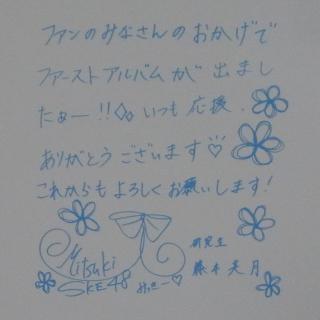 ファンのみなさんのおかげで
ファーストアルバムが出まし
たぁー!!◇。いつも応援、
ありがとうございます♡
これからもよろしくお願いします!
Mitsuki
SKE48
みっきー♡
研究生
藤本美月